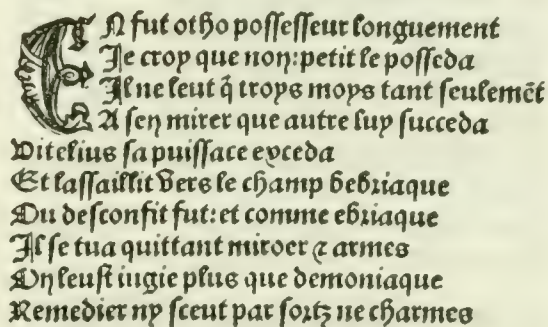 EN fut otho possesseur longuement
Je croy que non: petit le posseda
Il ne leut q̃ troys moys tant seulemẽt
A sen mirer que autre luy succeda
Vitelius sa puissãce exceda
Et lassaillit vers le champ bebriaque
Ou desconfit fut: et comme ebriaque
Il se tua quittant miroer ⁊ armes
On leust iugie plus que demoniaque
Remedier ny sceut par sortz ne charmes